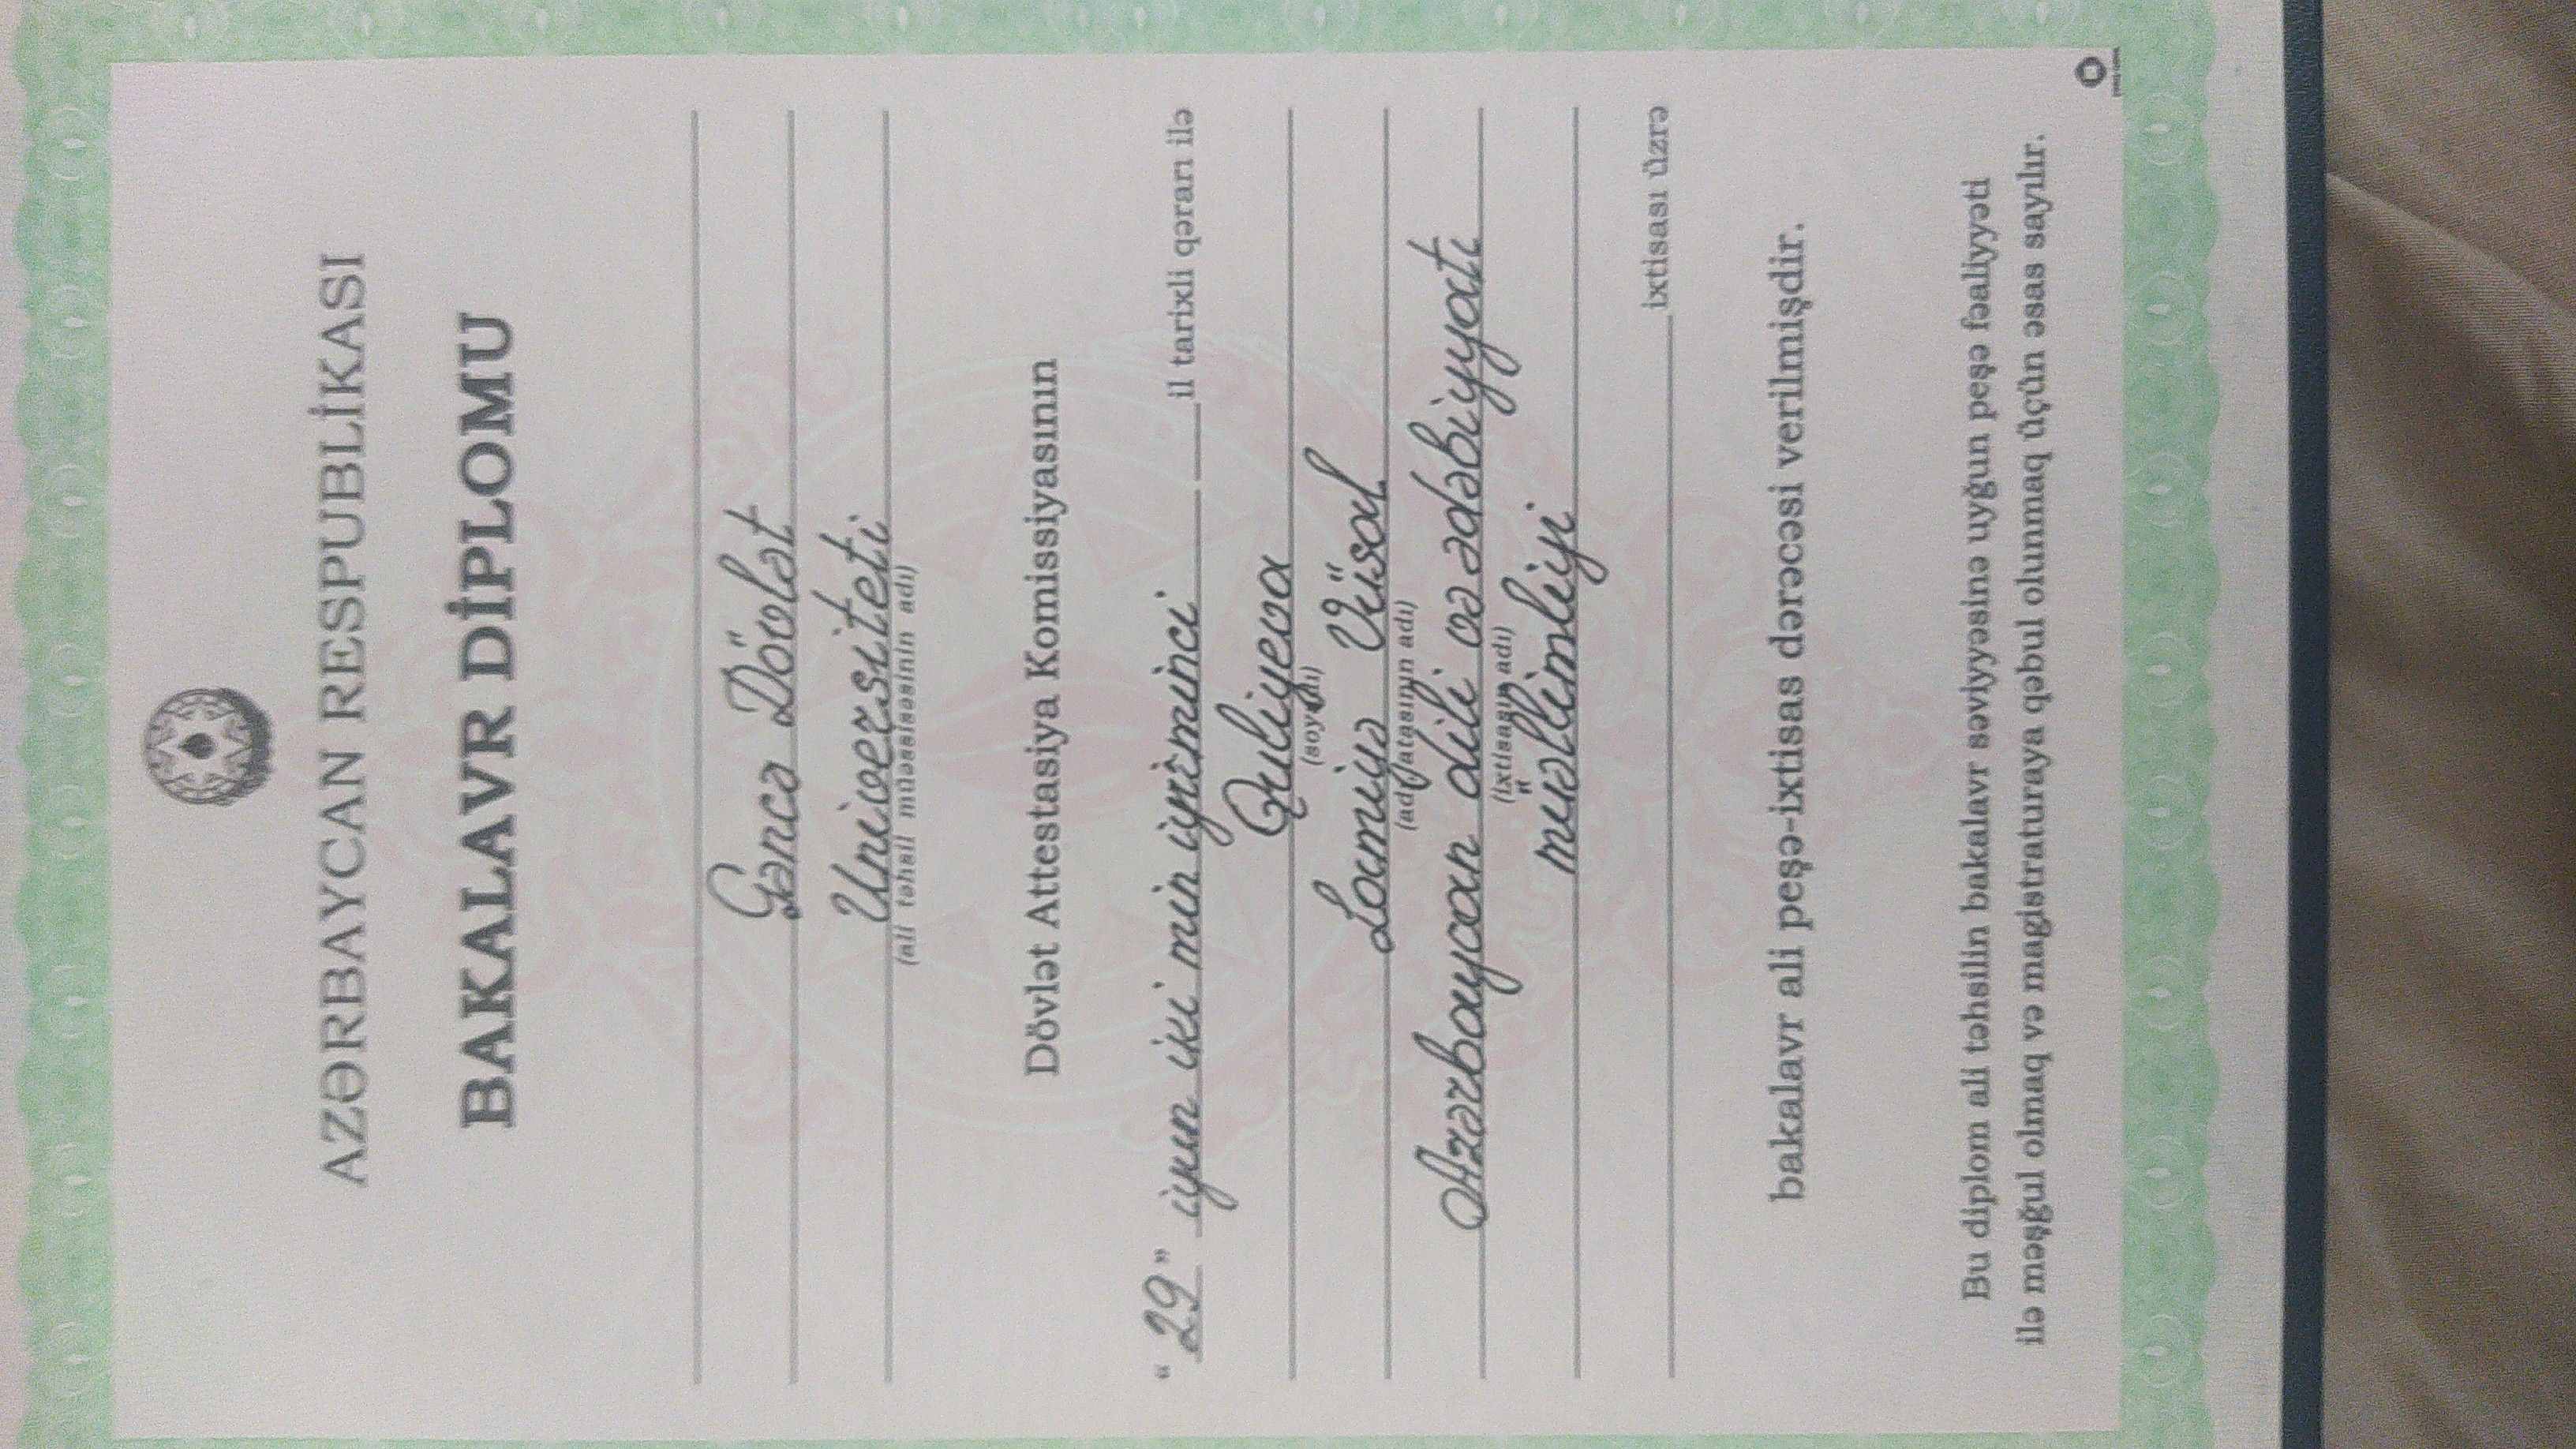 AZƏRBAYCAN RESPUBLİKASI
BAKALAVR DİPLOMU
Gəncə Dövlət
Universiteti
(ali təhsil müəssisəsinin adı)
Dövlət Attestasiya Komissiyasının
“29” iyun iki min iyirminci il tarixli qərarı ilə
Quliyeva
(soyadı)
Lamiyə Vüsal
(adı, atasının adı)
Azərbaycan dili və ədəbiyyatı
(ixtisasın adı)
müəllimliyi
ixtisası üzrə
bakalavr ali peşə-ixtisas dərəcəsi verilmişdir.
Bu diplom ali təhsilin bakalavr səviyyəsinə uyğun peşə fəaliyyəti
ilə məşğul olmaq və magistraturaya qəbul olunmaq üçün əsas sayılır.